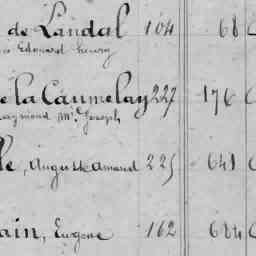 de Landal 104 68
Edouard henry
e la Caunelay 227 176
Raymond Mie Joseph
le, Auguste Amand 225 641
ain, Eugene 162 684